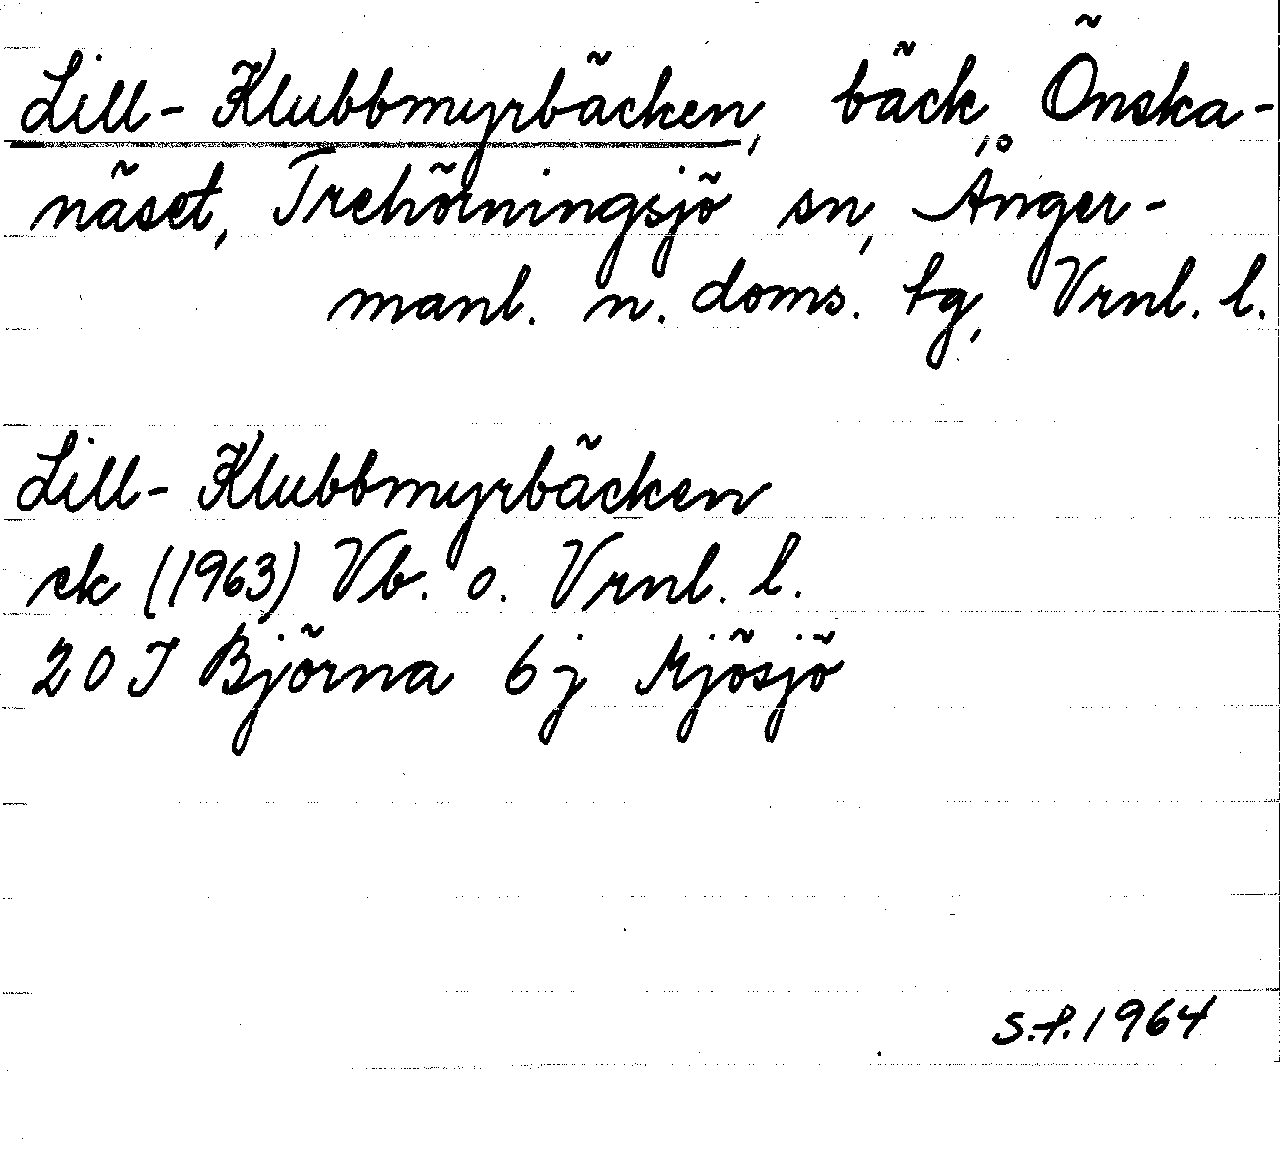 Lill-Klubbmyrbäcken, bäck, Önska-
näset, Trehörningsjö sn, Ånger-
manl. n. doms. tg, Vrnl. l.
Lill-Klubbmyrbäcken
ek (1963) Vb. o. Vrnl. l.
20 J Björna 6 j Mjösjö
S.P. 1964